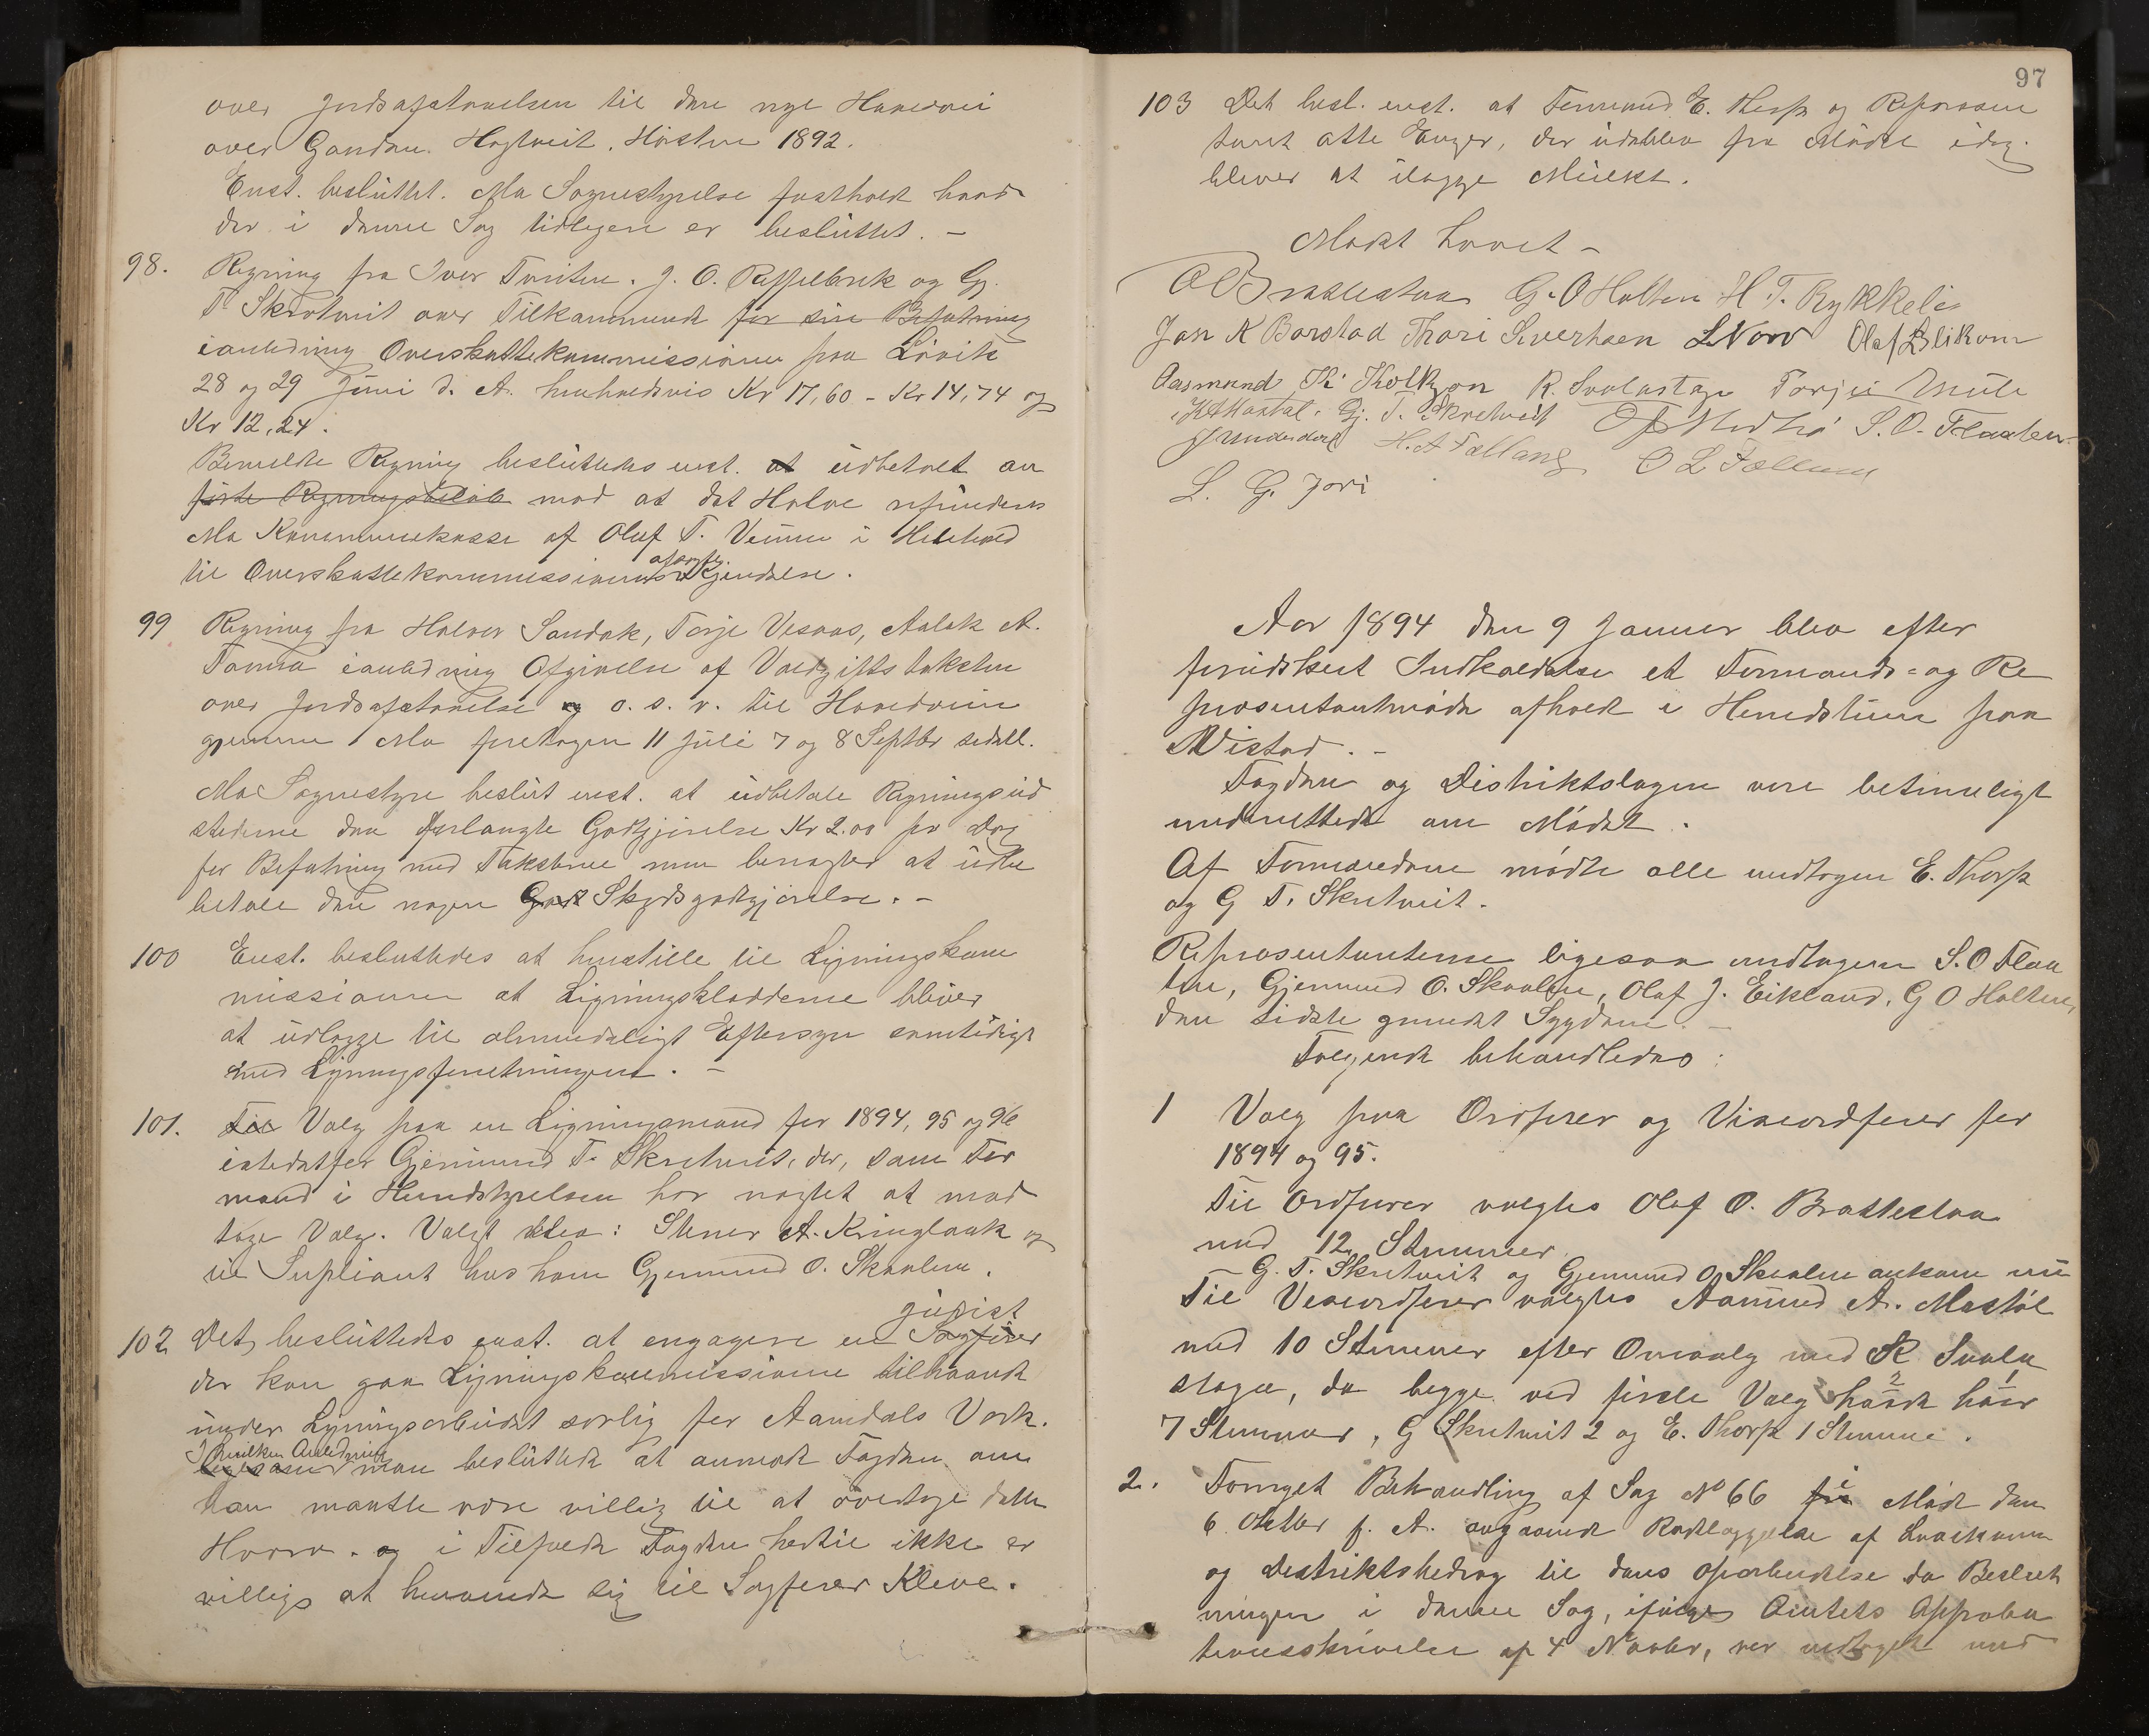 over Jordafstaaelsen til den nye Hovedvei
over Gardene Høgtveit. Høsten 1892.
Enst. besluttet. Mo Sognestyrelse fastholdt hvad
der i denne Sag tidligere er besluttet. –
98. Regning fra Iver Tveiten. J. O. og Gj.
T. Skretveit over Tilkommende for sin Befatning
ianledning Overskattekommissionen paa Løvik
28 og 29 Juni d. A. henholdsvis Kr 17,60 – Kr 14,74 og
Kr 12,24.
Bemeldte Regning besluttedes enst. at udbetalt
mod at det Halve refunderes
Mo Kommunekasse af Oluf T. i Henhold
til Overskattekommissionens afsagte Kjendelse.
99 Regning fra Halvor Sandok, Torje Vesaas, Aslak A.
ianledning Afgivelse af Voldgiftstaksten
over Jordafstaaelse og o. s. v. til Hovedveien
gjennem Mo foretagen 11 Juli 7 og 8 Septbr sidstl.
Mo Sognestyre beslut enst. at udbetale Regningsud
stederne den forlangte Godtgjørelse Kr 2.00 pr Dag
for Befatning med Taksterne men benegter at udbe
betale dem nogen God Skydsgodtgjørelse. –
100 Enst. besluttedes at henstille til Ligningskom
missionen at Ligningskladderne bliver
at udlægge til almindeligt Eftersyn samtidigt
med Ligningsforretningen. –
101. Til Valg paa en Ligningsmand for 1894, 95 og 96
istedetfor Gjermund T. Skretveit, der, som For
mand i Herredstyrelsen har nægtet at mod
tage Valg. Valgt blev: Stener A. Kringlaak og
til Supliant hos ham Gjermund O. Skaalen.
102 Det besluttedes enst. at engagere en Sagfører jurist
der kan gaa Ligningskommissionen tilhaande
under Ligningsarbeidet særlig for Aamdals Verk.
I hvilken Anledning man besluttede at anmode Fogden om
han maatte være villig til at overtage dette
Hverv. og i Tilfælde Fogden hertil ikke er
villig at henvende sig til Sagfører Kleve.
97
103 Det besl. enst. at Formand E. Thorp og Represen
tant Atte Enger, der udeblev fra Møde idag
bliver at ilægge Mulkt.
Mødet hævet –
O O Brattestaa G. O Holten H. T. Rykkeli
Jon K Borstad Thore Siverhsen L Norv Olaf Lilikom
Aasmund K. R. Svalastoga Torjei
Gj. T. Skretveit S. O. Flaaten
H. A. O L
L. G. Jori
Aar 1894 den 9 Januar blev efter
forudskeet Indkaldelse et Formands- og Re
præsentantmøde afholdt i Herredstuen paa
Vistad. –
Fogden og Distriktslægen vare betimeligt
underrettede om Mødet.
Af Formændene mødte alle undtagen E. Thorp
og G T. Skretveit.
Repræsentanterne ligesaa undtagen S. O Flaa
ten, Gjermund O. Skaalen, Olaf J. Eikland, G O Holten,
den sidste grundet Sygdom. –
Følgende behandledes:
1 Valg paa Ordfører og Viseordfører for
1894 og 95.
Til Ordfører valgtes Olaf O. Brattestaa
med 12 Stemmer
– G. T. Skretveit og Gjermund O. Skaalen ankom nu
Til Viseordfører valgtes Aamund A. Mostøl
med 10 Stemmer efter Omvalg med K Svala
stoga, da begge ved første Valg havde hver
7 Stemmer, G Skretveit 2 og E. Thorp 1 Stemme.
2. Fornyet Behandling af Sag No 66 i Møde den
6 Oktbr f. A. angaaende Rodelæggelse af
og Distriktsbedrag til dens Oparbeidelse da Beslut
ningen i denne Sag, ifølge Amtets Approba
tionsskrivelse af 4 Novbr, var vedtaget med